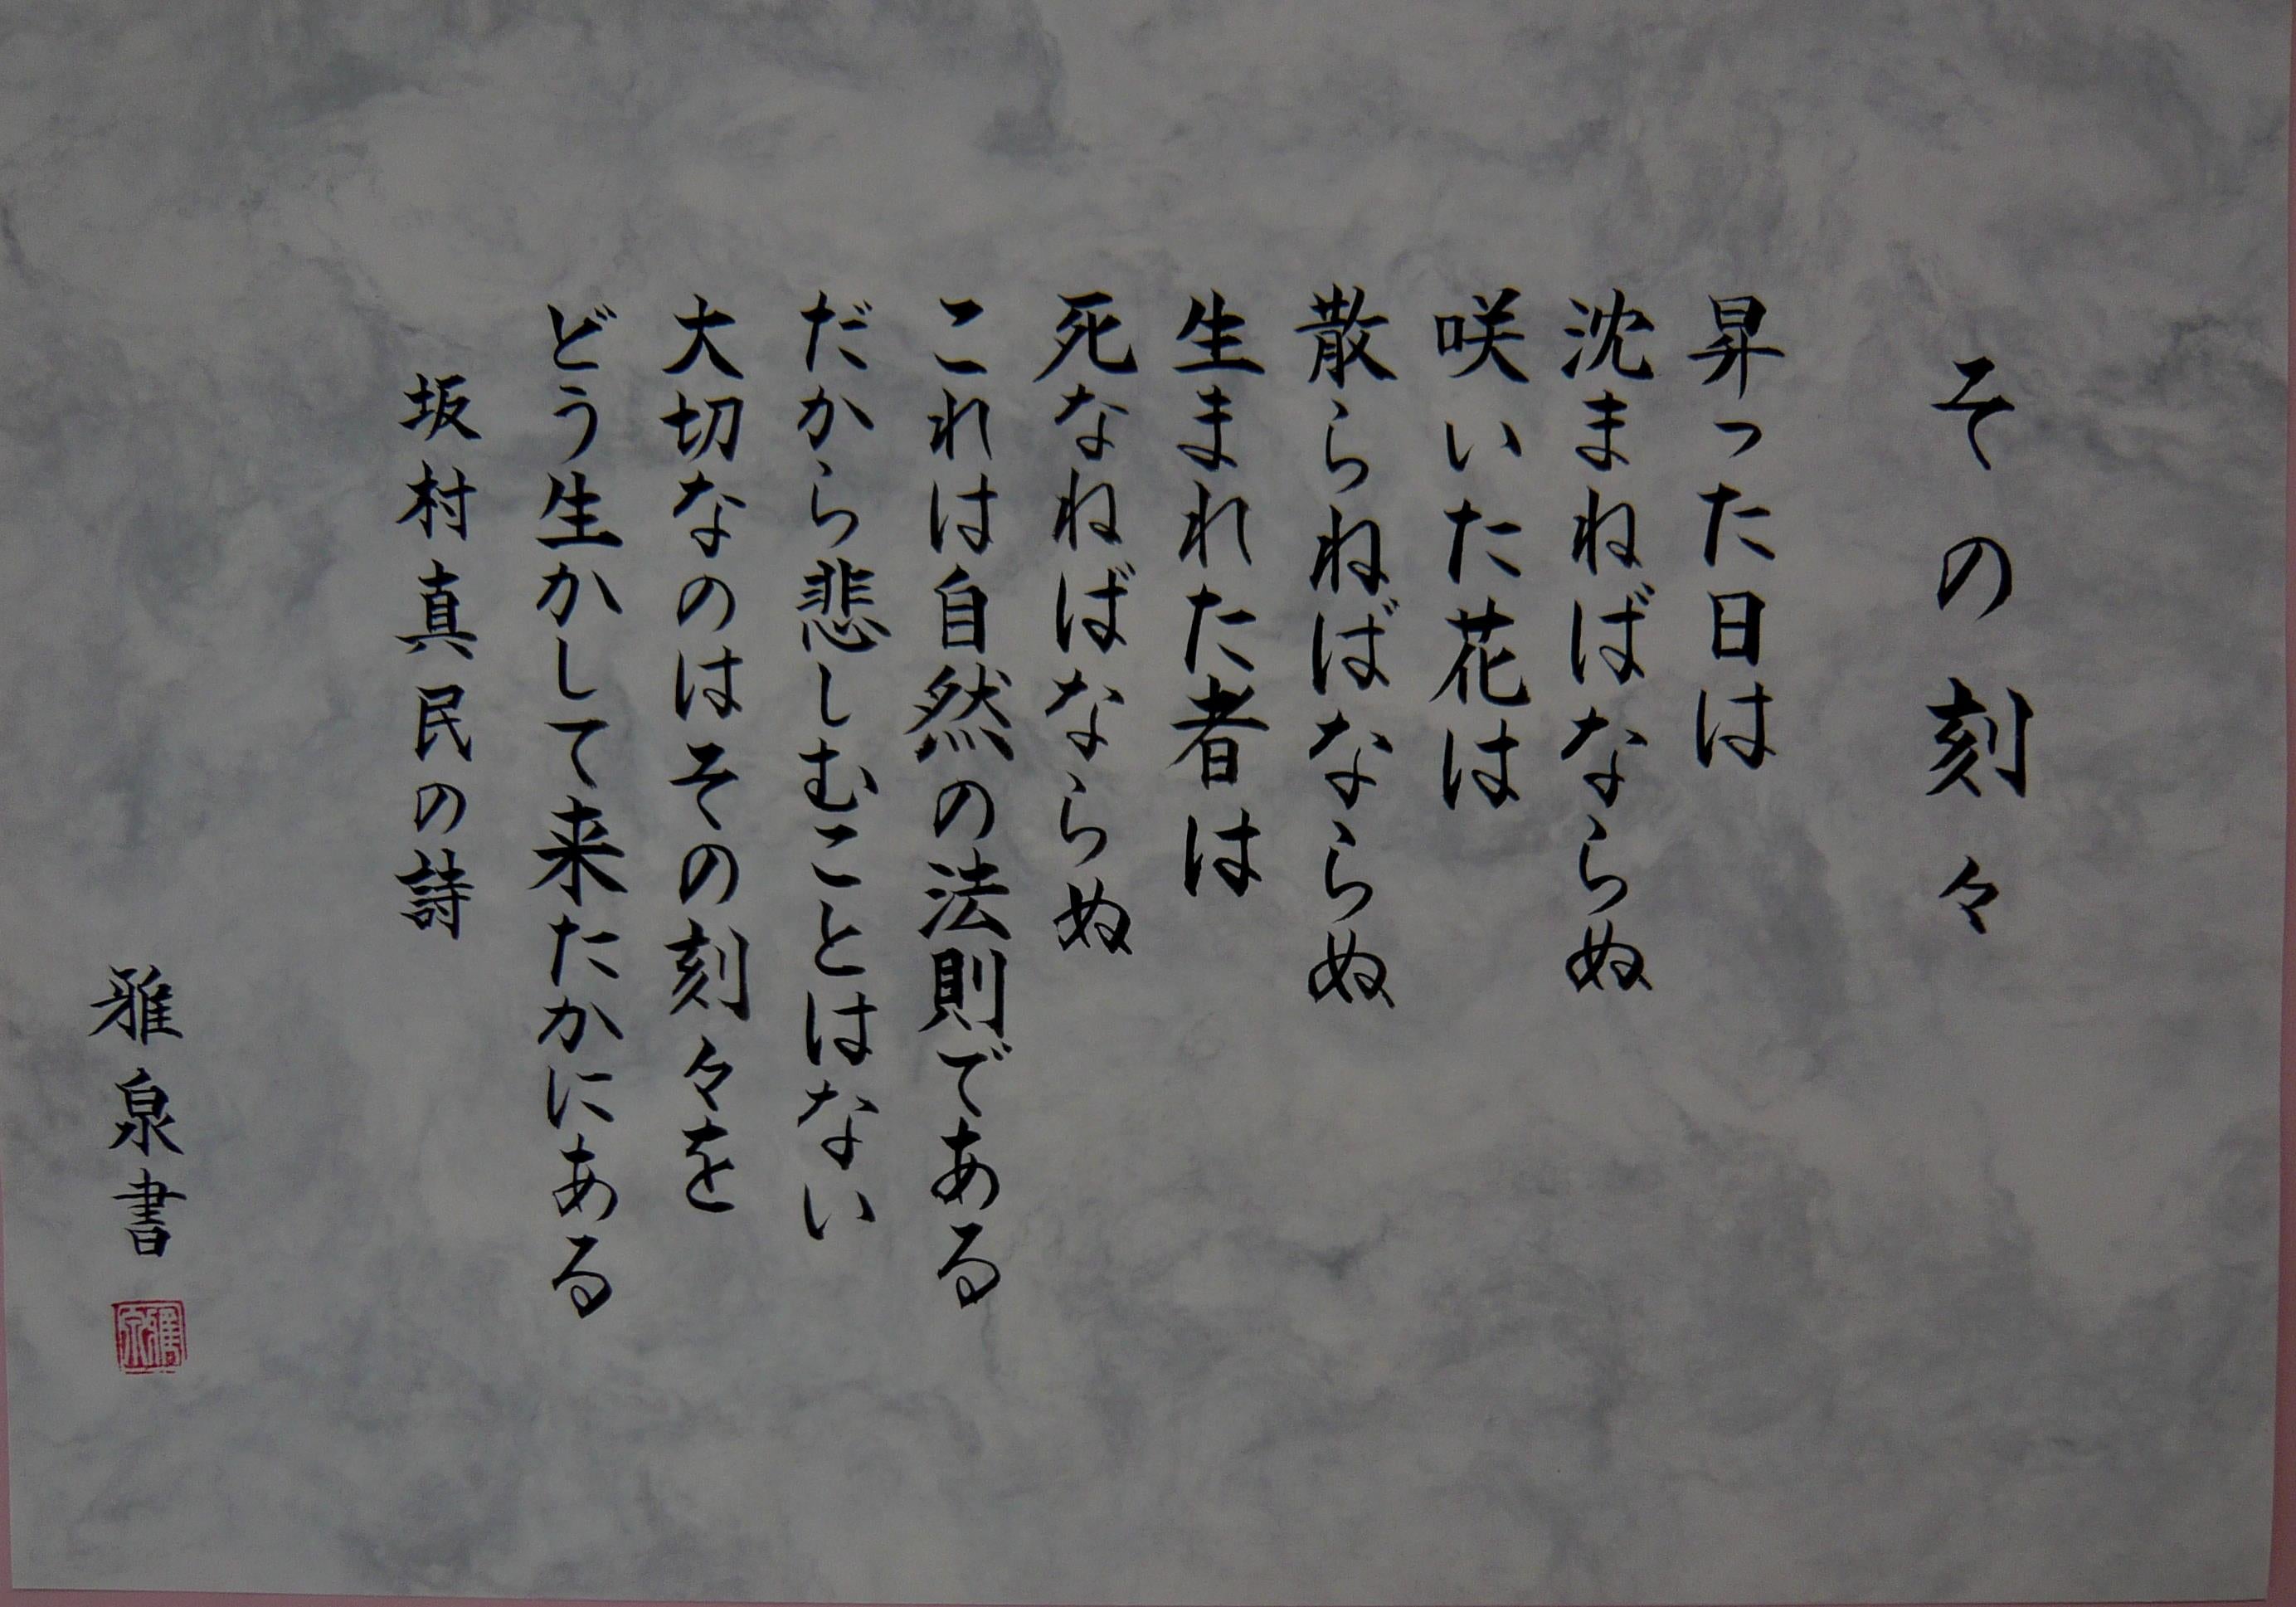 その刻々
昇った日は
沈まねばならぬ
咲いた花は
散らねばならぬ
生まれた者は
死なねばならぬ
これは自然の法則である
だから悲しむことはない
大切なのはその刻々を
どう生かして来たかにある
坂村真民の詩
雅泉書
雅泉